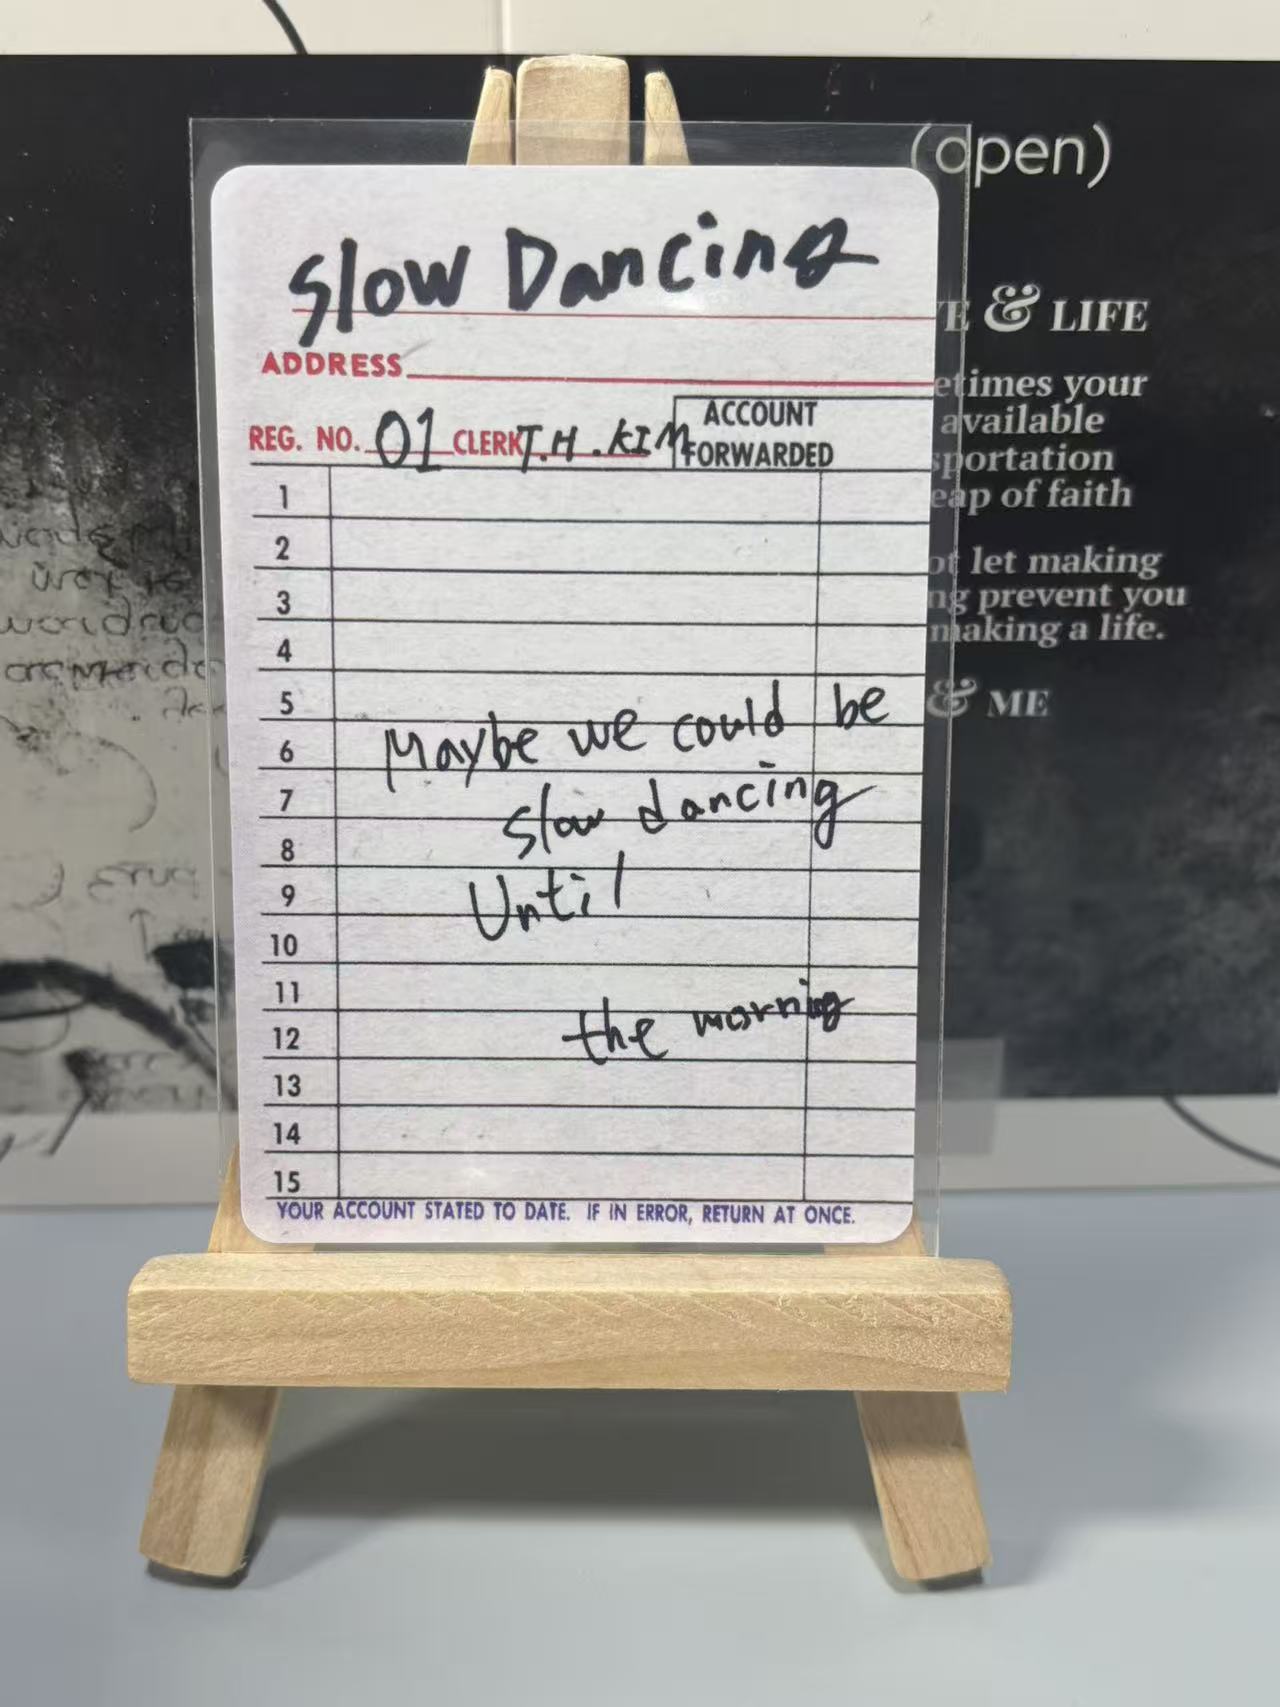 Slow Dancing
ADDRESS
REG. NO. 01 CLERK T.H. KIM
ACCOUNT
FORWARDED
1
2
3
4
5
6
7
8
9
10
11
12
13
14
15
Maybe we could be
slow dancing
Until
the morning
YOUR ACCOUNT STATED TO DATE. IF IN ERROR, RETURN AT ONCE.
(open)
& LIFE
etimes your
available
sportation
eap of faith
ot let making
ng prevent you
making a life.
& ME